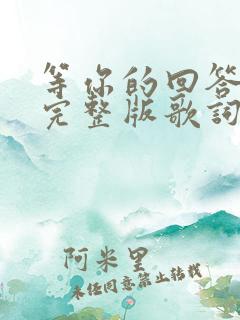 等你的回答
完整版歌词
阿米里
未经同意禁止转载